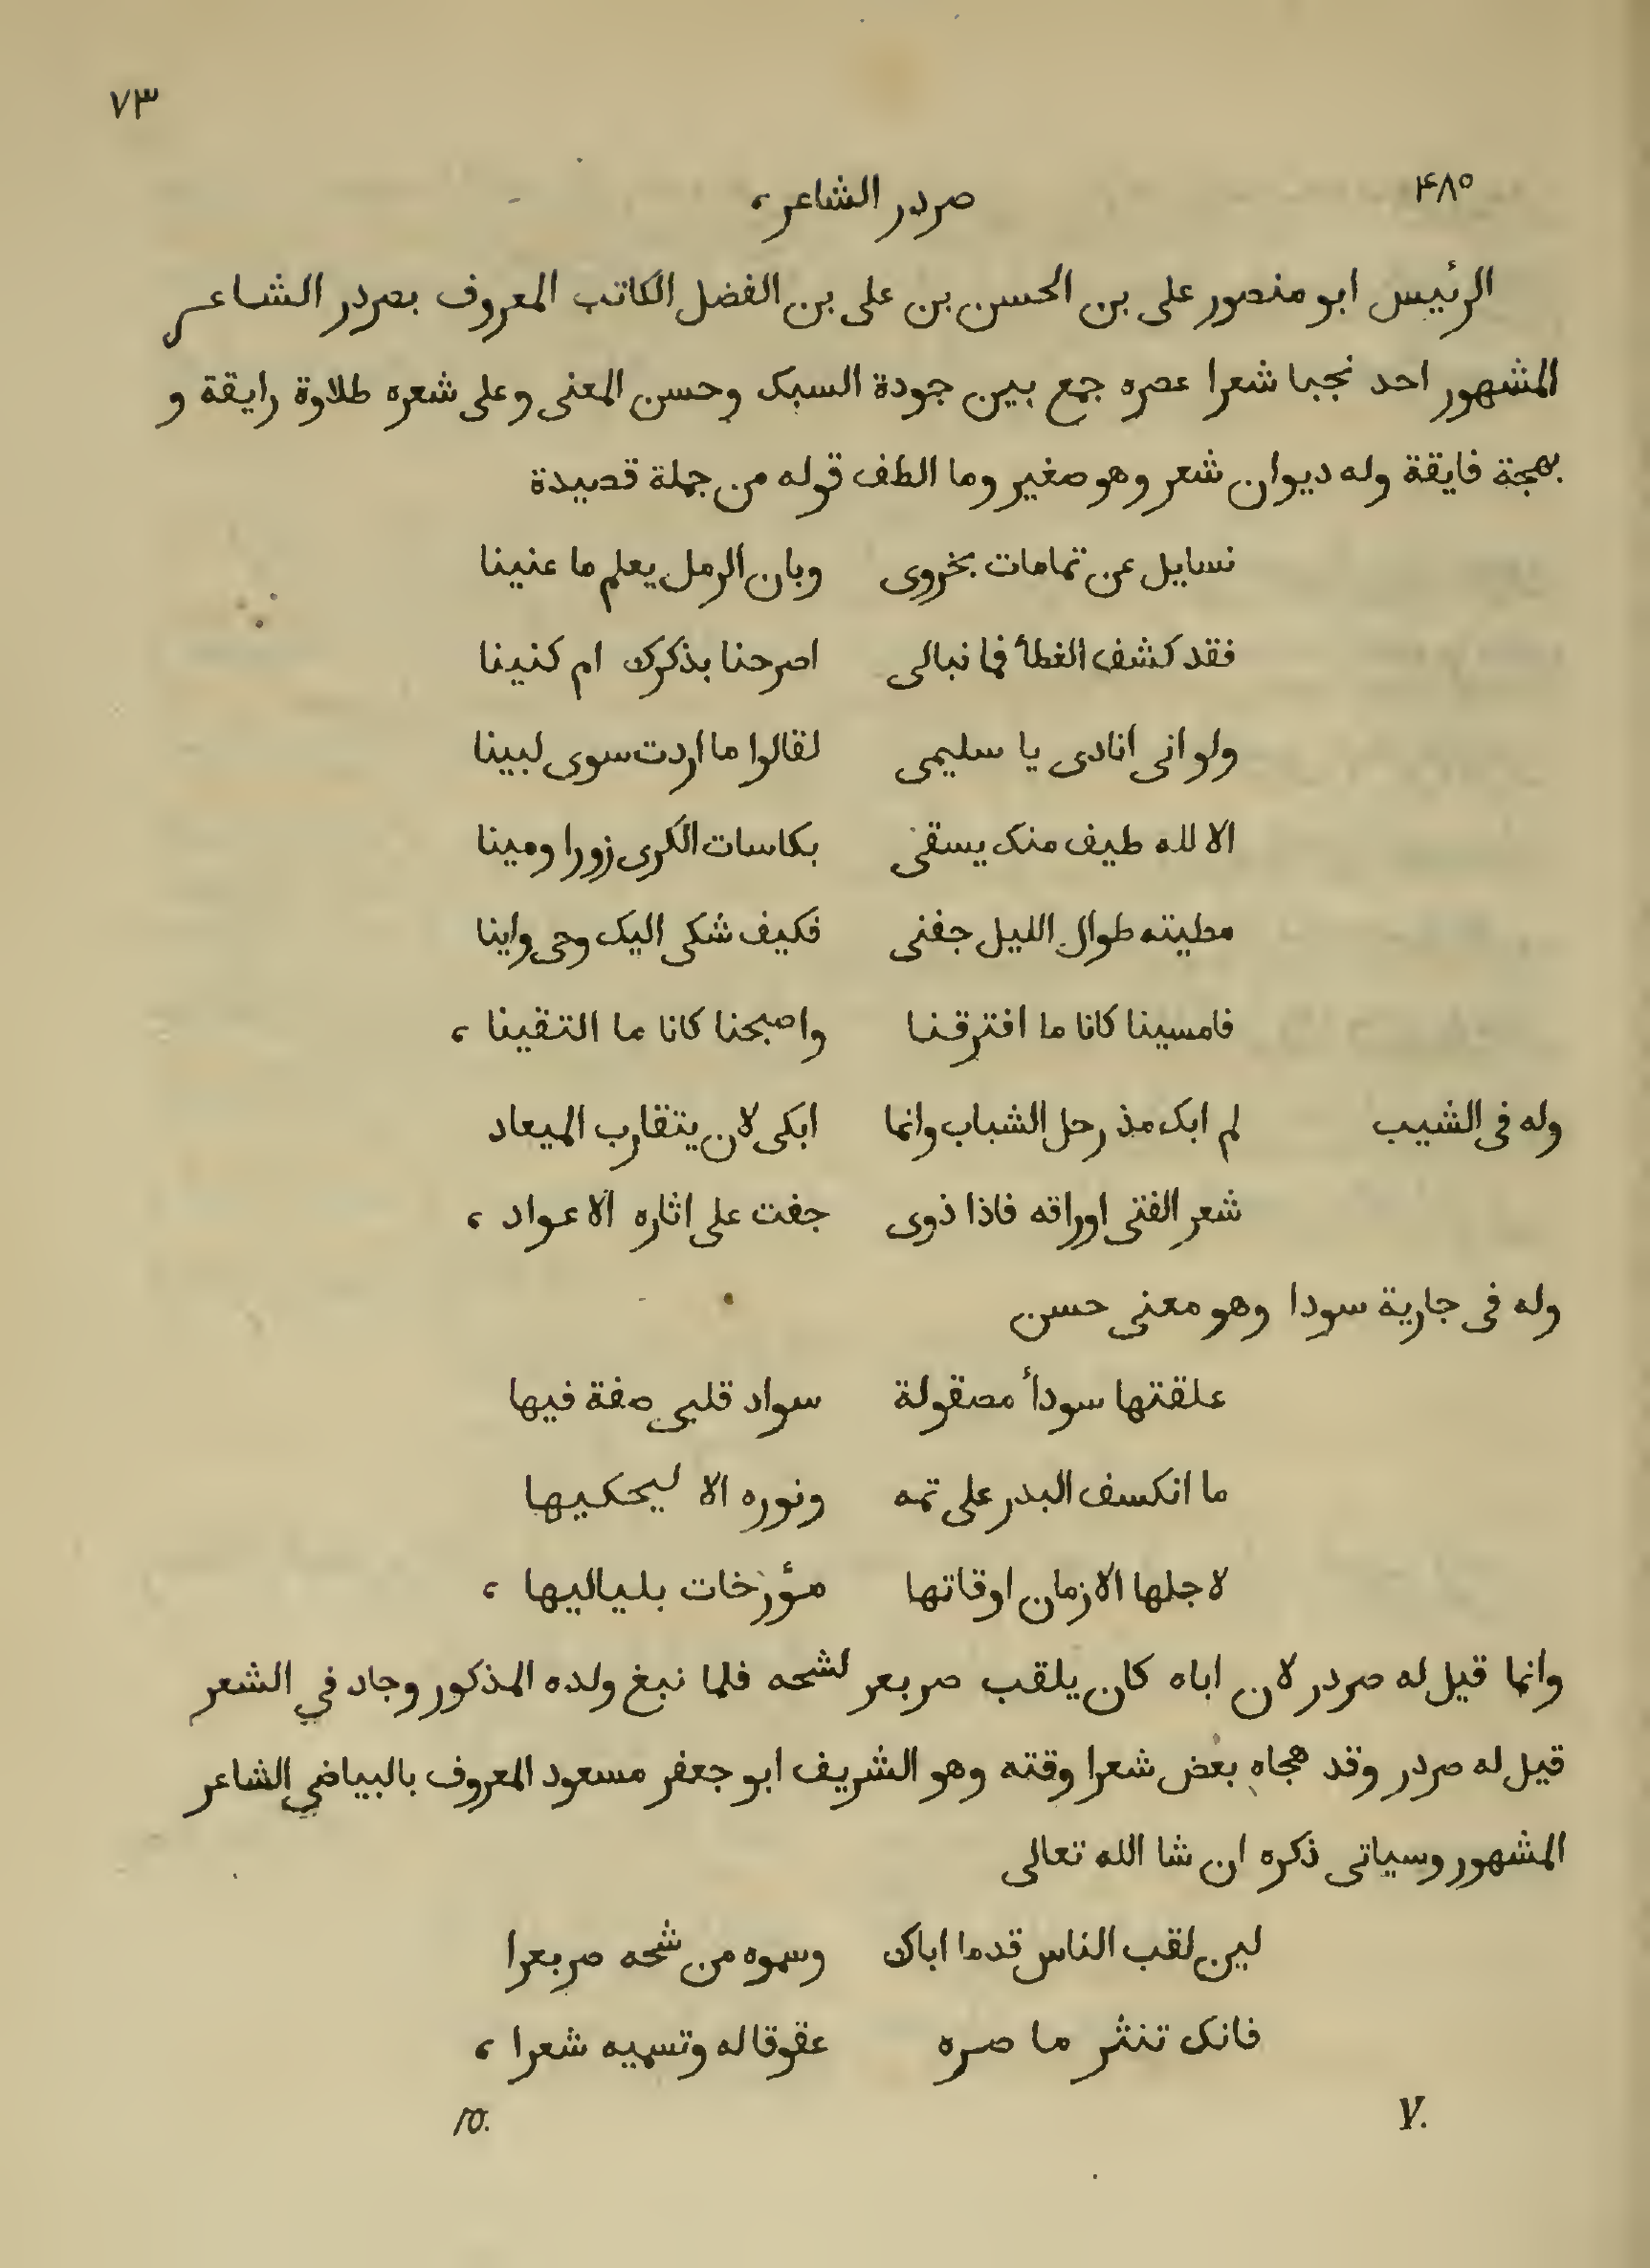 ٧٣
۴٨٥
صردر الشاعر،
الرئيس ابو منصور على بن الحسن بن على بن الفضل الكاتب المعروف بصردر الشاعر
المشهور احد نجبا شعرا عصره جمع بين جودة السبك وحسن المعنى وعلى شعره طلاوة رايقة و
بهجة فايقة وله ديوان شعر وهو صغير وما الطف قوله من جملة قصيدة
نسايل عن ثمامات بخروى وبان الرمل يعلم ما عنينا
فقد كشف الغطأ فما نبالى اصرحنا بذكرك ام كنينا
ولو انى انادى يا سليمى لقالوا ما اردت سوى لبينا
الا لله طيف منك يسقى بكاسات الكرى زورا ومينا
مطيته طوال الليل جفنى فكيف شكى اليك وجى واينا
فامسينا كانا ما افترقنا واصبحنا كانا ما التقينا ،
وله فى الشيب لم ابك مذ رحل الشباب وانما ابكى لان يتقارب الميعاد
شعر الفتى اوراقه فاذا ذوى جفت على اثاره الاعواد ،
وله فى جارية سودا وهو معنى حسن
علقتها سودأ مصقولة سواد قلبى صفة فيها
ما انكسف البدر على تمه ونوره الا ليحكيها
لاجلها الازمان اوقاتها مؤرخات بلياليها ،
وانما قيل له صردر لان اباه كان يلقب صربعر لشحه فلما نبغ ولده المذكور وجاد في الشعر
قيل له صردر وقد هجاه بعض شعرا وقته وهو الشريف ابو جعفر مسعود المعروف بالبياضي الشاعر
المشهور وسياتى ذكره ان شا الله تعالى
لين لقب الناس قدما اباك وسموه من شحه صربعرا
فانك تنثر ما صره عقوقا له وتسميه شعرا ،
V.